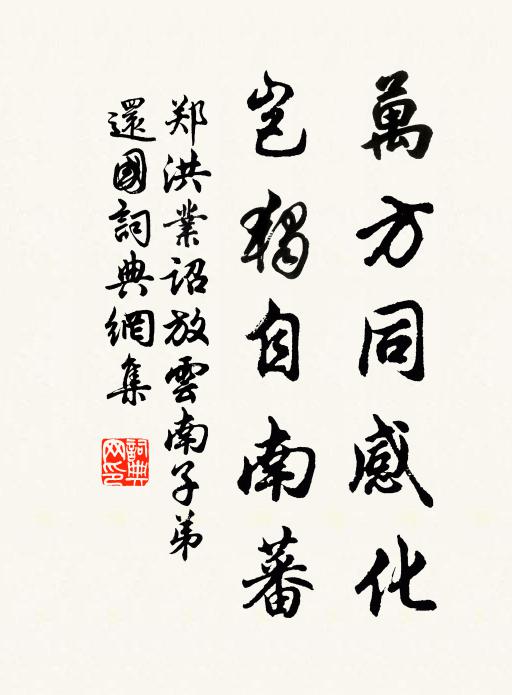 萬方同感化
岂獨自南蕃
郑洪業詔放雲南子弟
還國詞典網集
詞典
网印